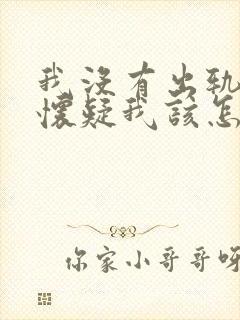 我沒有出軌
懷疑我該怎
你家小哥哥呀